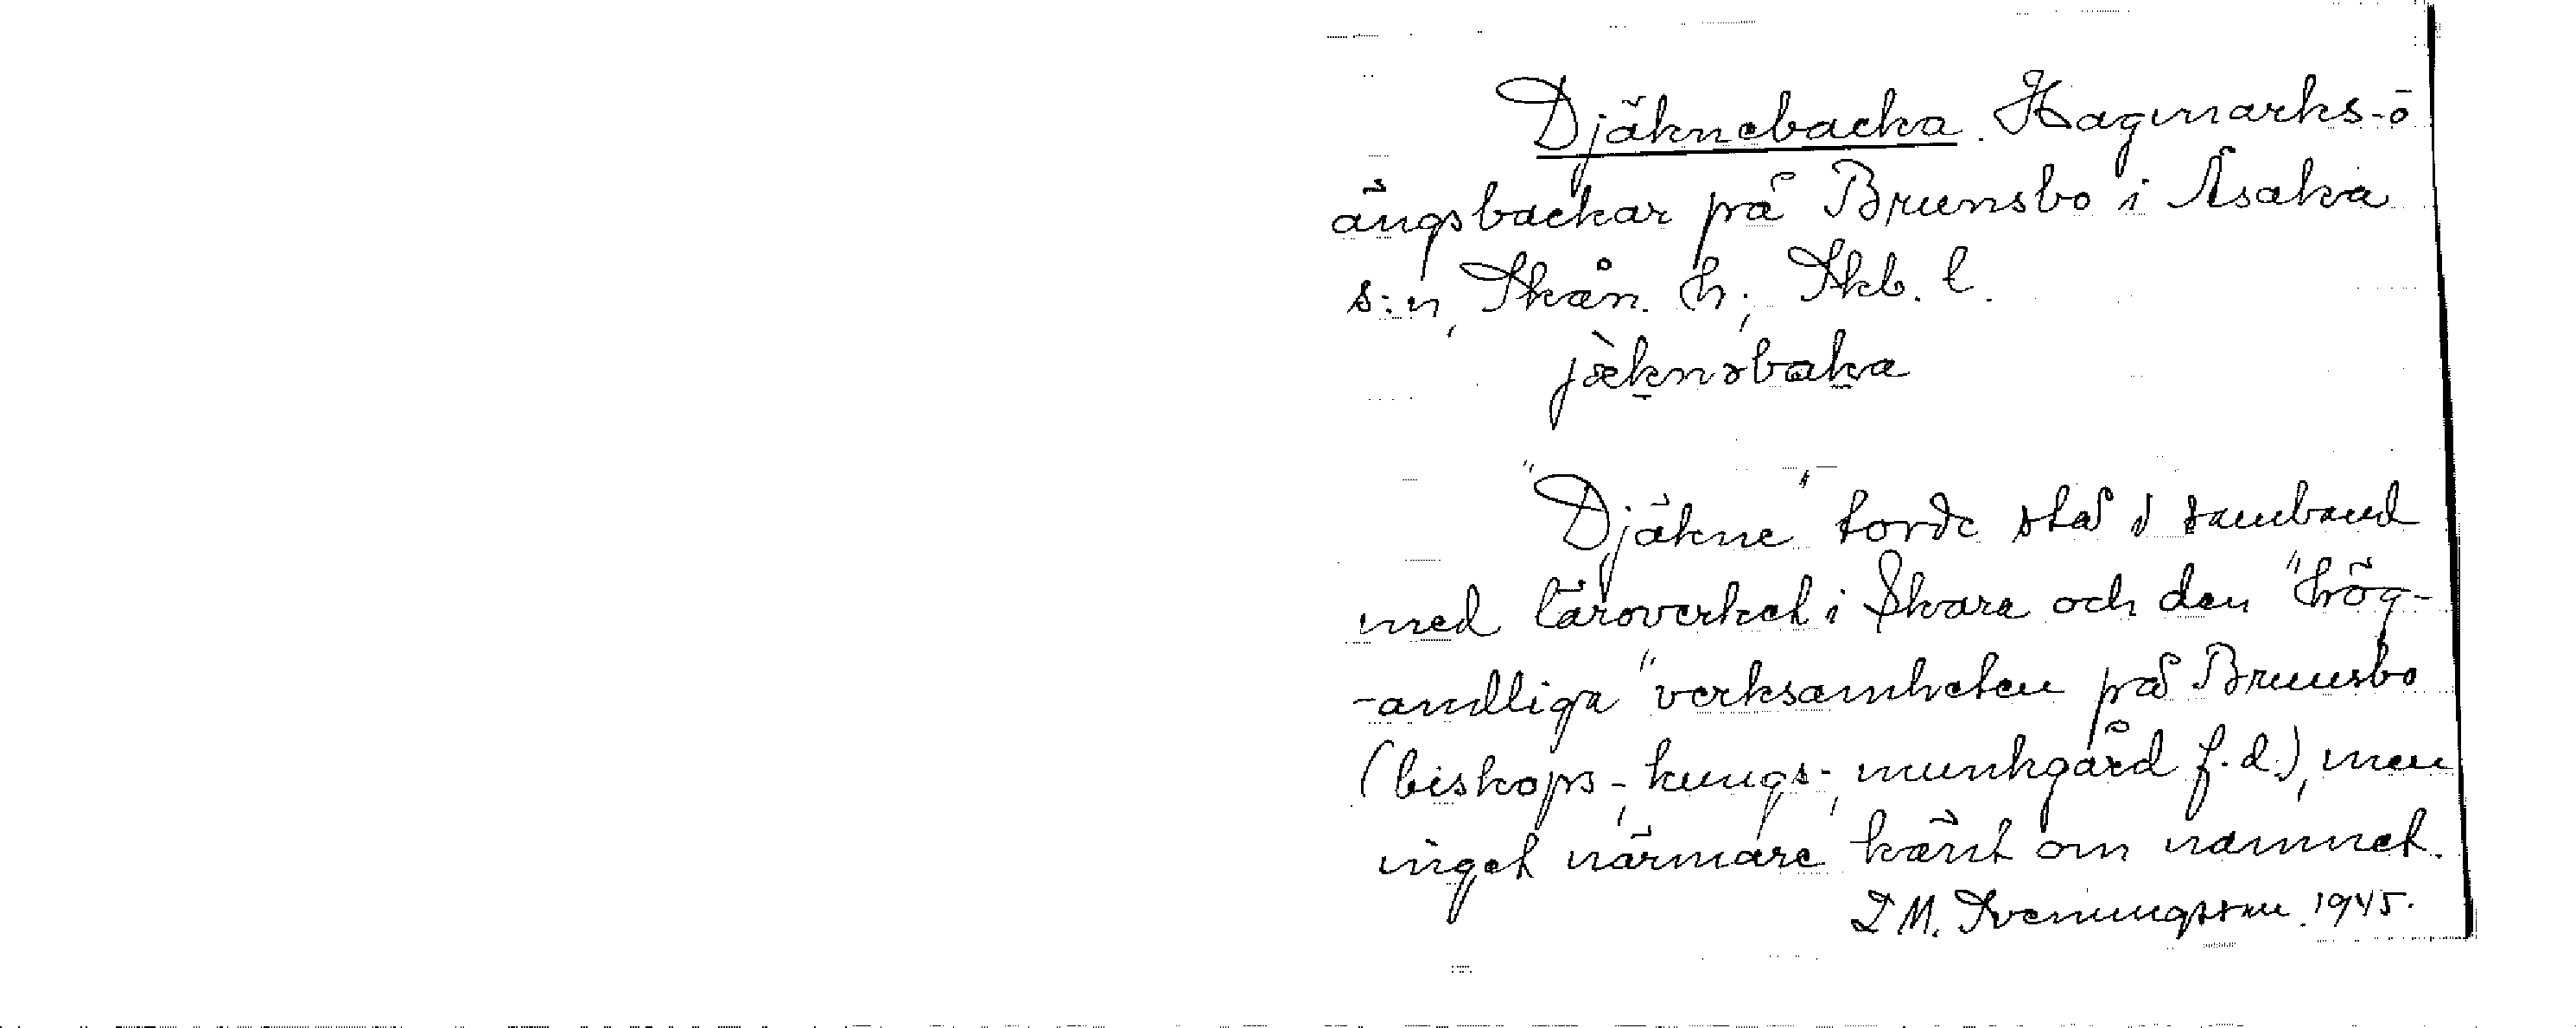 Djäknebacka. Hagmarks- o
ängsbackar på Brunsbo i Åsaka
s:n, Skån. h; Skb. l.
jæ̀knəbaka
"Djäkne" torde stå i samband
med läroverket i Skara och den "hög-
-andliga" verksamheten på Brunsbo
(biskops-, kungs-, munkgård f.d.), men
inget närmare känt om namnet.
M. Sveningsson. 1945.